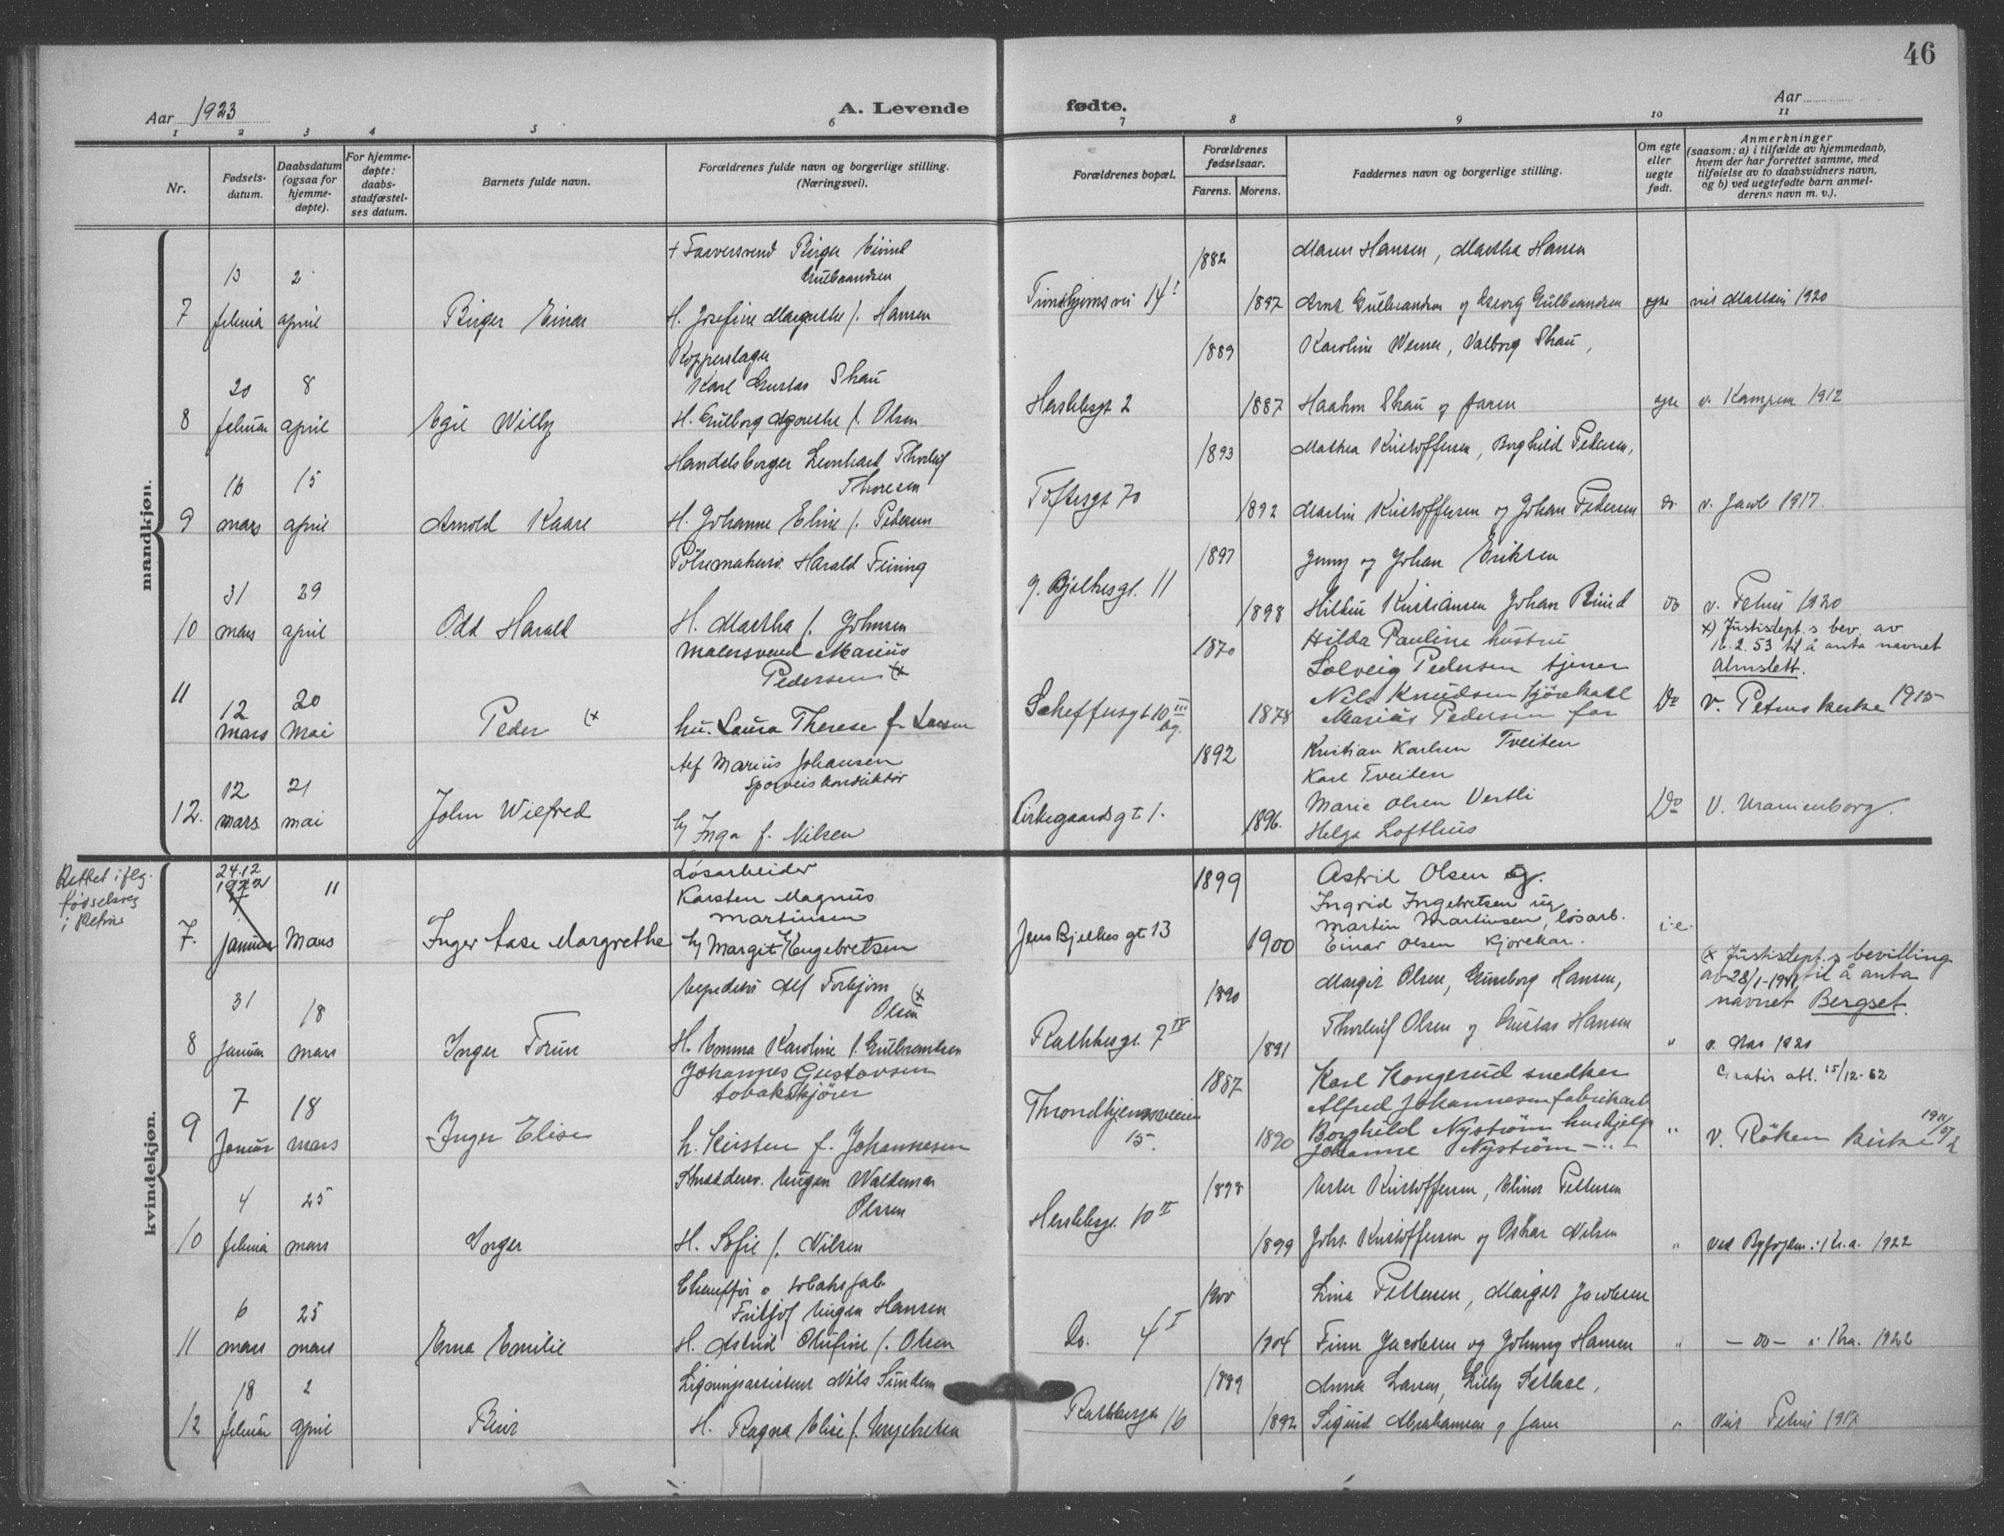 46
Aar 1923
A. Levende
fødte.
Aar
1 2 3 4 5 6 7 8 9 10 11
Nr.
Fødsels-
datum.
Daabsdatum
(ogsaa for
hjemme-
døpte).
For hjemme-
døpte:
daabs-
stadfæstel-
ses datum.
Barnets fulde navn.
Forældrenes fulde navn og borgerlige stilling.
(Næringsvei).
Forældrenes bopæl.
Forældrenes
fødselsaar.
Farens. Morens.
Faddernes navn og borgerlige stilling.
Om egte
eller
uegte
født.
Anmerkninger
(saasom: a) i tilfælde av hjemmedaab,
hvem der har forrettet samme, med
tilføielse av to daabsvidners navn,
og b) ved uegtefødte barn anmel-
derens navn m. v.).
mandkjøn.
+ Farversvend Birger Eivind
Gulbrandsen 1882 Maren Hansen, Martha Hansen
13 2
7 februar april Birger Einar H. Josefine Margrethe f. Hansen Trondhjemsvei 14 I 1897 Arnt Gulbrandsen og Gulbrandsen egte 1920
Kopperslager
Karl Gustav Skau 1889 Karoline Werner, Valborg Skau,
20 8
8 februar april Egil Willy H. Gulborg Agnethe f. Olsen Herslebsgt 2 1887 Haakon Skau og faren egte v. Kampen 1912
Handelsborger Leonhard Thorleif
Thoresen 1893 Mathea Kristoffersen, Borghild Pedersen,
16 15
9 mars april Arnold Kaare H. Johanne Eline f. Pedersen Toftesgt 70 1892 Martin Kristoffersen og Johan Pedersen do. v. Jacob 1917.
Pølsemakersv. Harald Feiring 1897 Jenny og Johan Eriksen
31 29
10 mars april Odd Harald H. Martha f. Johnsen J. Bjelkesgt. 11 1898 Kristiansen Johan do v. Petrus 1920
x) Justisdept.s bev. av
16.2.53 til å anta navnet
Almslett.
Malersvend Marius
Pedersen (x 1870 Hilda Pauline hustru
Solveig Pedersen tjener
11 12 20
mars mai Peder (x hu. Laura Therese f. Larsen Scheffersgt 10 III bg. 1878 Nils Knudsen kjørekarl
Marius Pedersen far Do v. Petrus kirke 1915
Alf Marius Johansen
Sporveiskonduktør 1892 Kristian Karlsen Tveiten
Karl Tveiten
12 21
12. mars mai John Wilfred h/ Inga f. Nilsen Kirkegaardsgt 1. 1896. Marie Olsen Vestli
Helga Lofthus Do V. Uranienborg.
kvindekjøn.
Rettet iflg.
fødselsreg
i Petrus
24.12
1922 11
7. januar Mars Inger Aase Margrethe
Løsarbeider
Karsten Magnus
Martinsen
h/ Margit Engebretsen Jens Bjelkes gt 13 1899 1900 Astrid Olsen og.
Ingrid Ingebretsen ug
Martin Martinsen, løsarb.
Einar Olsen kjørekar. i.e.
(x Justisdept.s bevilling
av 28/1-1941 til å anta
navnet Bergset.
Alf Torbjørn
Olsen (x 1890 Margit Olsen, Gunborg Hansen,
Thorleif Olsen og Gustav Hansen
31 18
8 januar mars Inger Torun H. Emma Karoline f. Gulbrandsen Rathkesgt. 7 IV 1891 " v. Nas 1920
Gratis att. 15/12-62
Johannes Gustavsen
tobakskjører 1887 Karl Kongerud snedker
Alfred Johannesen fabrikarb
7 18
9 Januar mars Inger Elise h. Kirsten f. Johannesen Throndhjemsveien
15. 1890 Borghild Nystrøm hushjelp
Johanne Nystrøm - " - " v. Røken kirke
Skræddersv. Eugen Waldemar
Olssen 1898 Ester Kristoffersen, Elinor Pettersen
4 25
10 februar mars Inger H. Sofie f. Nilsen Herslebsgt. 10 II 1899 Johs. Kristoffersen og Oskar Nilsen " ved Byfogden i Kr.a. 1922
Chauffør v. tobaksfab.
Fritjof Eugen Hansen 1900 Lina Pettersen, Margit Jacobsen
6 25
11 mars mars Erna Emilie H. Astrid Olufine f. Olsen Do. 4 I 1904 Finn Jacobsen og Johnny Hansen " - do - i Kra. 1922
Ligningsassistent Nils Sundem 1889 Anna Larsen, Lilly
18 2
12 februar april H. Ragna Elise f. Engebretsen Rathkesgt 16 1892 Sigurd Abrahamsen og faren " Petrus 1917